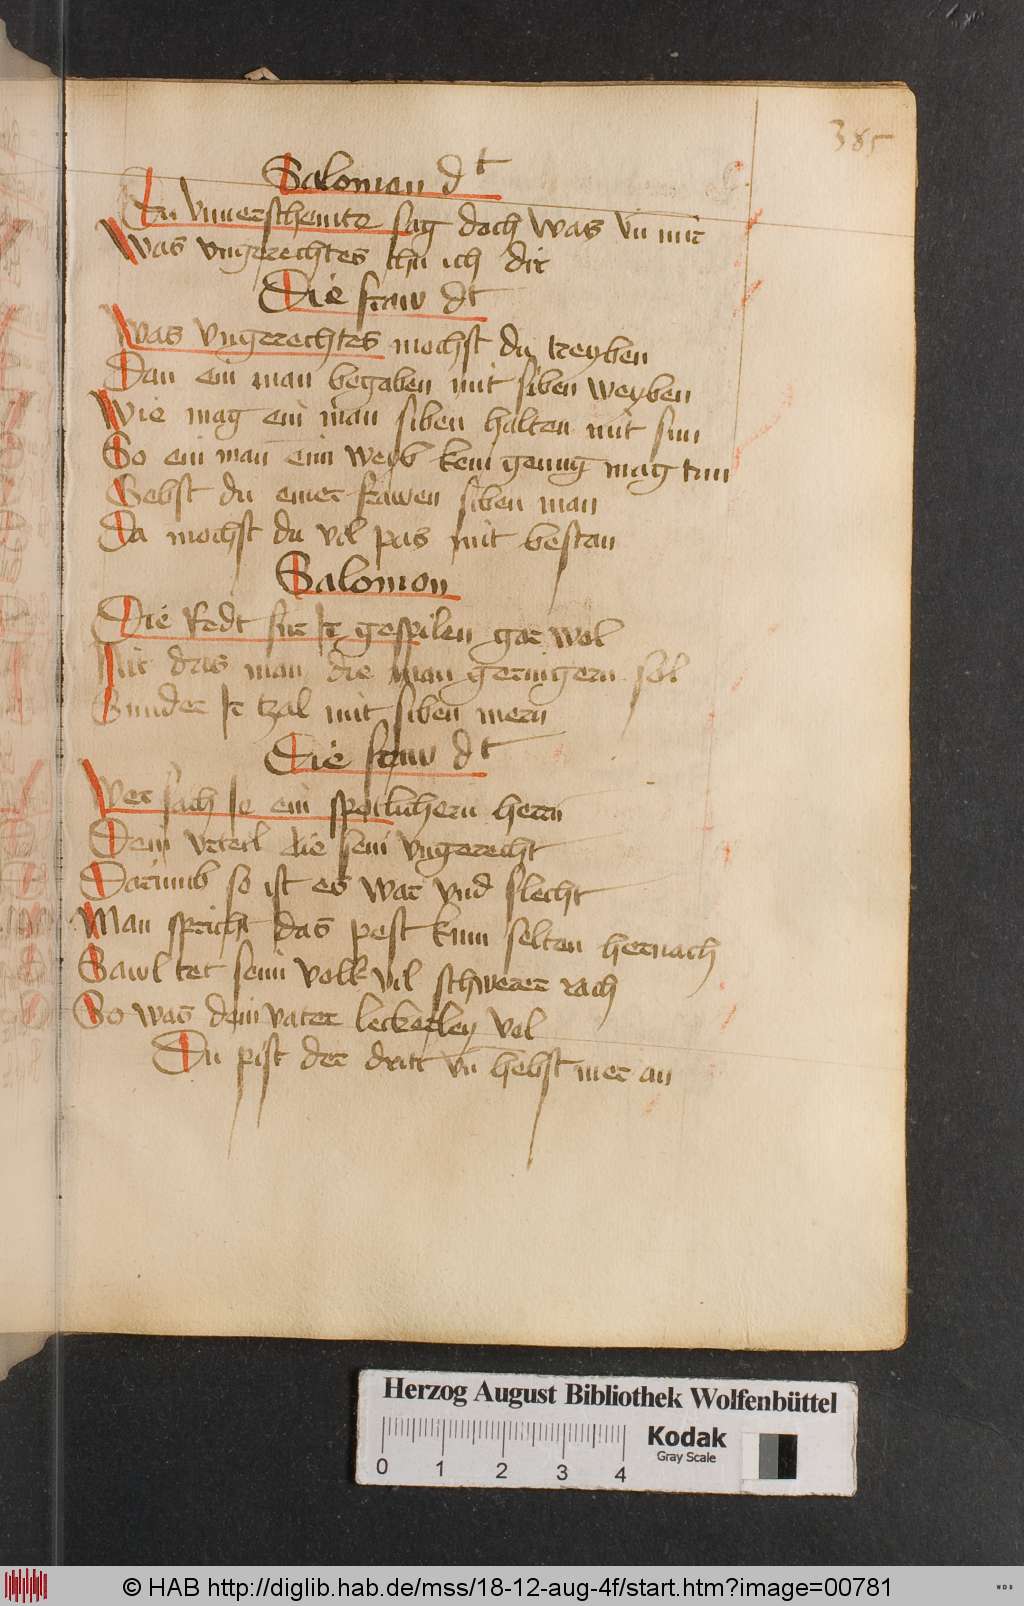 385
Salomon dt
Du vnuerschemte sag doch was vn mir
Was vngerechtes thu ich dir
Die fraw dt
Was vngerechtes mochst du treyben
Dan ein man begaben mit siben weyben
Wie mag ein man siben halten mit sin
So ein man eim weyb kem genug mag tun
Gebst du einer frawen siben man
Da mochst du vil pas mit bestan
Salomon
Die Redt fur Ir gespilen gar wol
Nit das man die man geringern sol
Sunder Ir tzal mit siben mern
Die fraw dt
Wer sach Ie ein spotlichern herrn
Dein vrteil die sein vngerecht
Darumb so ist es war vnd slecht
Man spricht das pest kum selten hernach
Sawl tet seim volk vil schwerer rach
So was dein vater leckerley vol
Du pist der dritt vn hebst mer an
Herzog August Bibliothek Wolfenbüttel
0 1 2 3 4
Kodak
Gray Scale
© HAB http://diglib.hab.de/mss/18-12-aug-4f/start.htm?image=00781
WDB